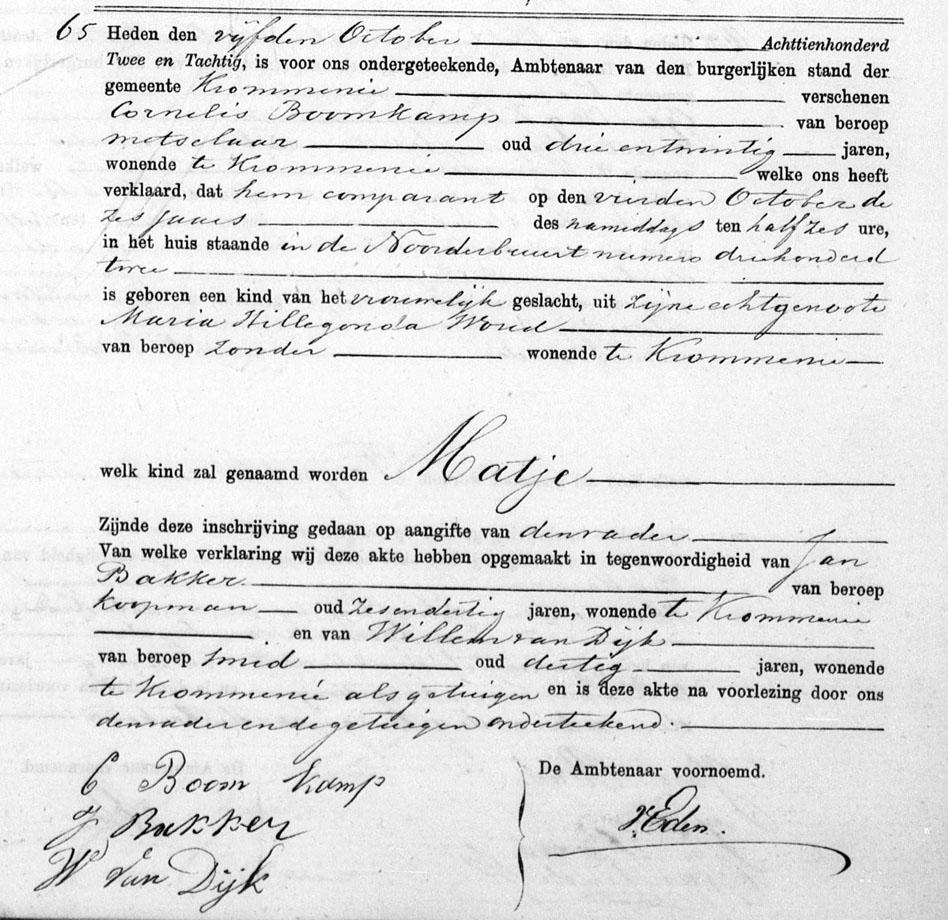 65 Heden den vijfden October Achttienhonderd
Twee en Tachtig, is voor ons ondergeteekende, Ambtenaar van den burgerlijken stand der
gemeente Krommenie verschenen
Cornelis Boomkamp van beroep
metselaar oud drie entwintig jaren,
wonende te Krommenie welke ons heeft
verklaard, dat hem comparant op den vierden October de
zes jaars des namiddags ten half zes ure,
in het huis staande in de Noorderbuurt numero driehonderd
twee
is geboren een kind van het vrouwelijk geslacht, uit zijne echtgenoote
Maria Hillegonda
van beroep zonder wonende te Krommenie
welk kind zal genaamd worden Matje
Zijnde deze inschrijving gedaan op aangifte van den vader
Van welke verklaring wij deze akte hebben opgemaakt in tegenwoordigheid van Jan
Bakker van beroep
koopman oud zesendertig jaren, wonende te Krommenie
en van Willem van Dijk
van beroep smid oud dertig jaren, wonende
te Krommenie als getuigen en is deze akte na voorlezing door ons
den vader en de getuigen onderteekend.
De Ambtenaar voornoemd.
C Boom kamp
J Bakker
W van Dijk
Eden.